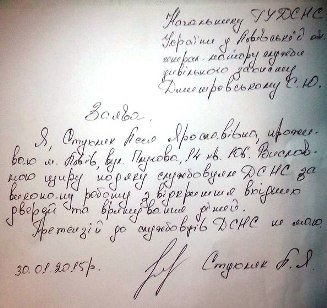 Начальнику ГУДСНС
України у Львівській обл.
генерал-майору служби
цивільного захисту
Дмитровському С.Ю.
Заява.
Я, Стуконяк Ярославівна, прожи-
ваю м. Львів, вул. 14 кв. Вислов-
люю щиру подяку службовцям ДСНС за
виконану роботу з відкриття вхідних
дверей та врятування дітей.
Претензій до службовців ДСНС не маю
30.01.2015р.